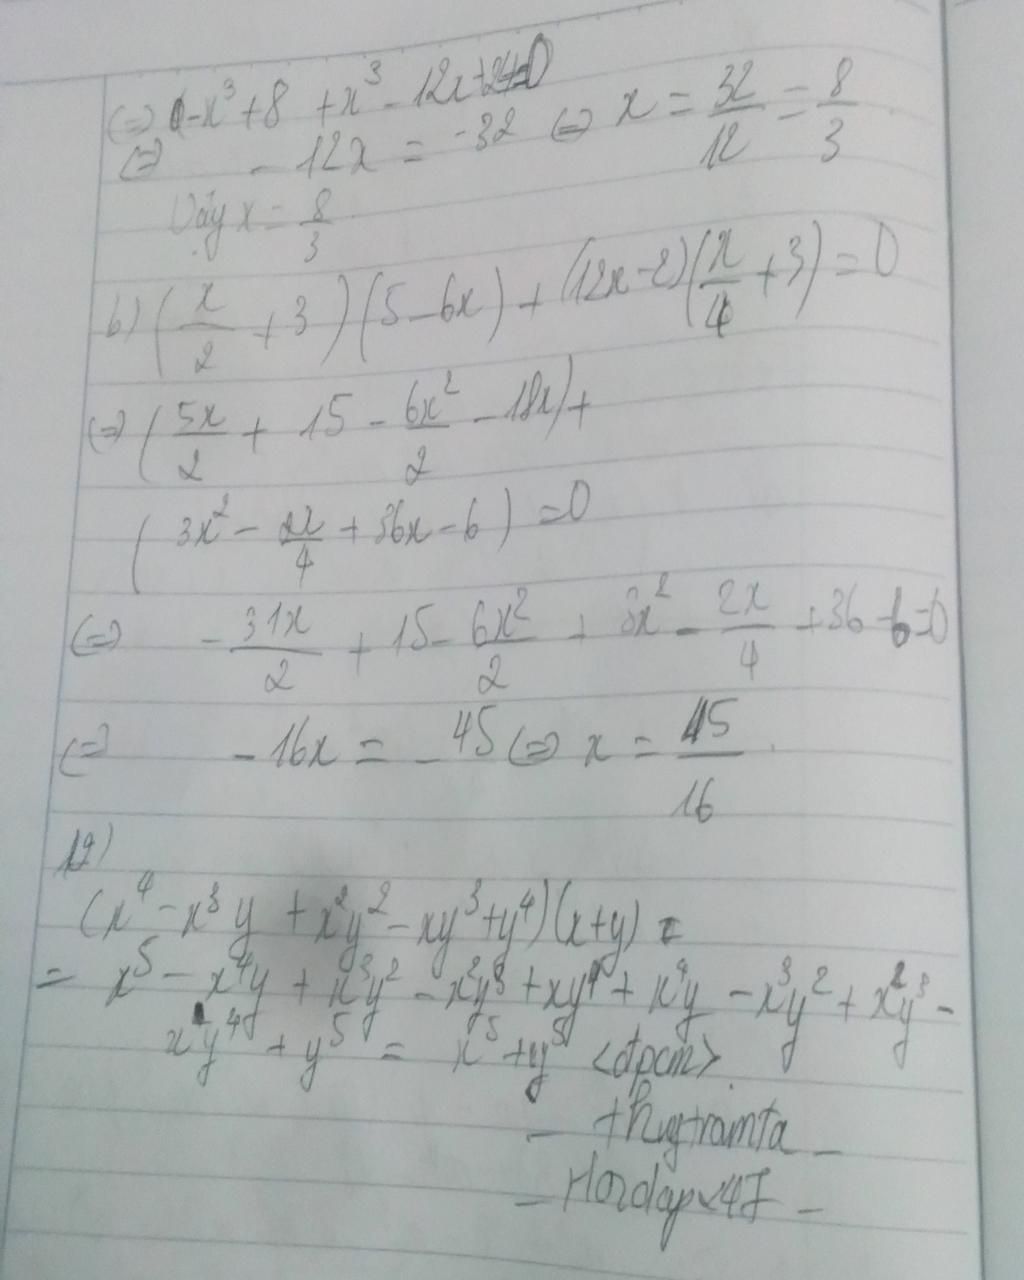 (=) -x³ + 8 + x³ - 12x + 24 = 0
(=) - 12x = -32 (=) x = 32/12 = 8/3
Vậy x = 8/3
b) (x/2 + 3)(5 - 6x) + (12x - 2)(x/4 + 3) = 0
(=) (5x/2 + 15 - 6x²/2 - 18x) +
(3x² - 2x/4 + 36x - 6) = 0
(=) - 31x/2 + 15 - 6x²/2 + 3x² - 2x/4 + 36 - 6 = 0
(=) - 16x = - 45 (=) x = 45/16
12)
(x⁴ - x³y + x²y² - xy³ + y⁴)(x + y) =
= x⁵ - x⁴y + x³y² - x²y³ + xy⁴ + x⁴y - x³y² + x²y³ -
xy⁴ + y⁵ = x⁵ + y⁵ <đpcm>
- thuytramta -
- Hoidapv47 -